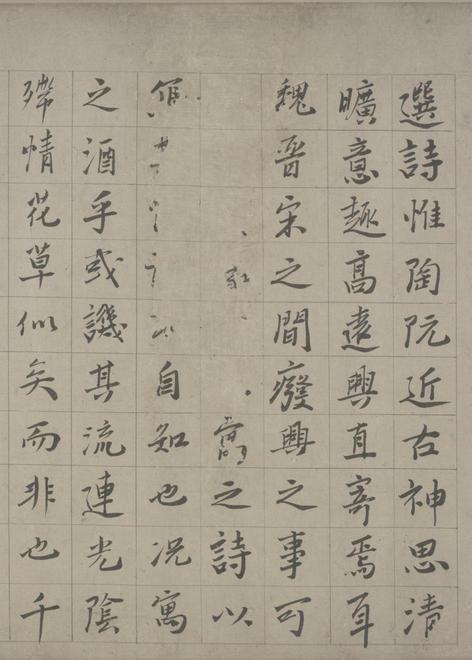 選詩惟陶阮近古神思清
曠意趣高遠興直寄焉耳
魏晉宋之間癈興之事可
之詩以
自知也况寓
之酒乎或譏其流連光陰
殢情花草似矣而非也千